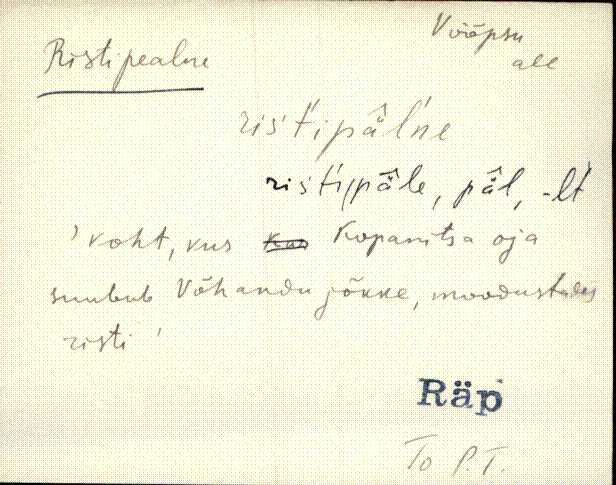 Ristipealne
Vööpsu
all
ris't'ipä̂l'ne
ris't'ipä̂le, pä̂l, -lt
'koht, kus Kopanitsa oja
suubub Võhandu jõkke, moodustades
risti'
Räp
To P.T.